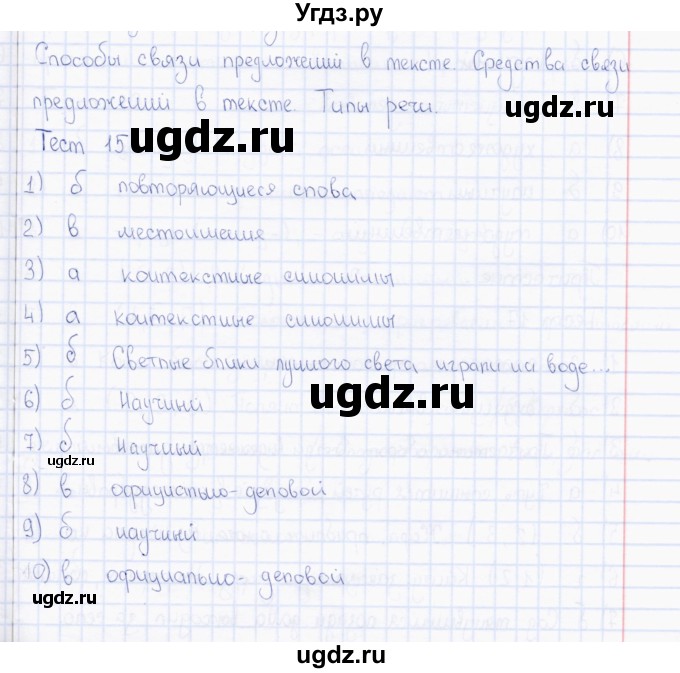 Угдз.ру
Способы связи предложений в тексте. Средства связи
предложений в тексте. Типы речи.
Тест 15
ugdz.ru
1) б повторяющиеся слова
2) в местоимение
3) а контекстные синонимы
4) а контекстные синонимы
5) б Светлые блики лунного света играли на воде...
6) б научный
ugdz.ru
7) б научный
ugdz.ru
8) в официально-деловой
9) б научный
10) в официально-деловой
ugdz.ru
ugdz.ru